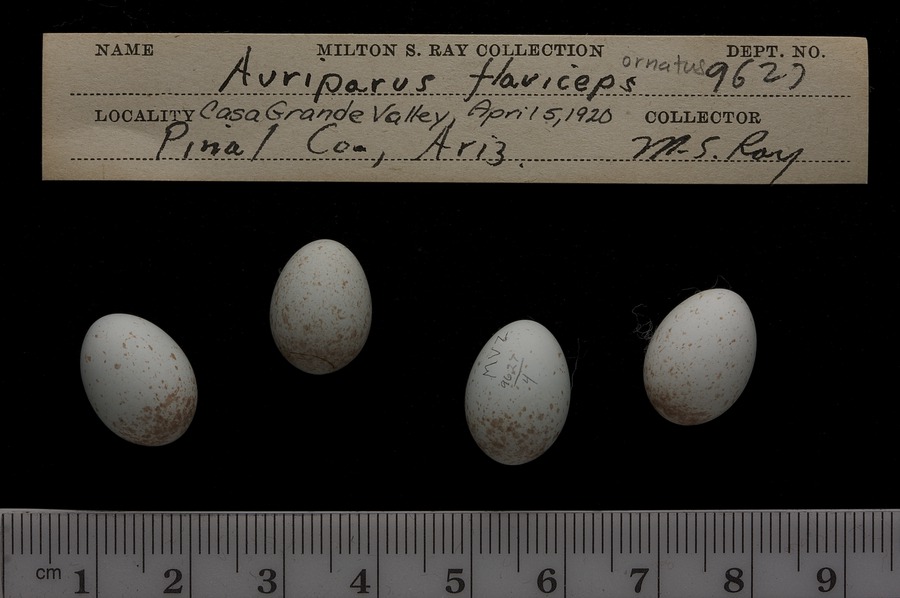 NAME MILTON S. RAY COLLECTION DEPT. NO.
Auriparus flaviceps ornatus 9627
LOCALITY Casa Grande Valley, April 5, 1920 COLLECTOR
Pinal Co., Ariz. M.S. Ray
MVZ
9627
4
cm 1 2 3 4 5 6 7 8 9